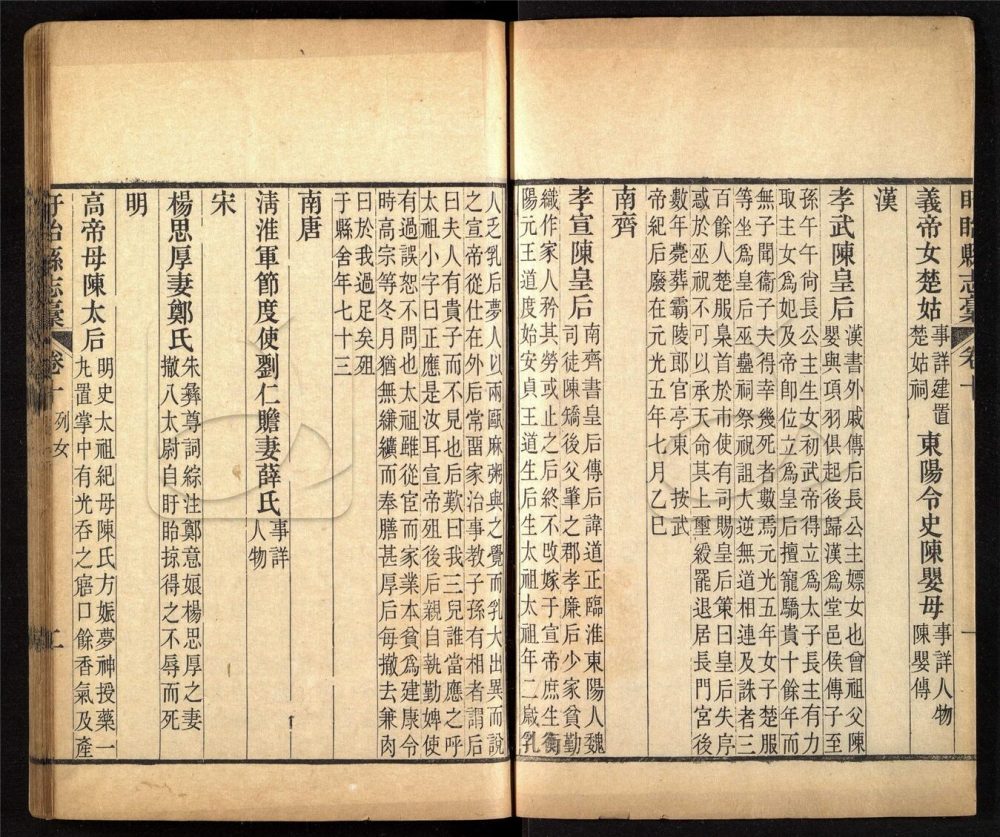 盱眙縣志藁 卷十 一
義帝女楚姑 事詳建置 楚姑祠 東陽令史陳嬰母 事詳人物 陳嬰傳
漢
孝武陳皇后 漢書外戚傳后長公主嫖女也曾祖父陳
嬰與項羽俱起後歸漢爲堂邑侯傳子至
孫午午尙長公主生女初武帝得立爲太子長主有力
取主女爲妃及帝卽位立爲皇后擅寵驕貴十餘年而
無子聞衞子夫得幸幾死者數焉元光五年女子楚服
等坐爲皇后巫蠱祠祭祝詛大逆無道相連及誅者三
百餘人楚服梟首於市使有司賜皇后策曰皇后失序
惑於巫祝不可以承天命其上璽綬罷退居長門宮後
數年薨葬霸陵郎官亭東 按武
帝紀后廢在元光五年七月乙巳
南齊
孝宣陳皇后 南齊書皇后傳后諱道正臨淮東陽人魏
司徒陳矯後父肇之郡孝廉后少家貧勤
織作家人矜其勞或止之后終不改嫁于宣帝庶生衡
陽元王道度始安貞王道生后生太祖太祖年二歲乳
人乏乳后夢人以兩甌麻粥與之覺而乳大出異而說
之宣帝從仕在外后常畱家治事教子孫有相者謂后
曰夫人有貴子而不見也后歎曰我三兒誰當應之呼
太祖小字曰正應是汝耳宣帝殂後后親自執勤婢使
有過誤恕不問也太祖雖從宦而家業本貧爲建康令
時高宗等冬月猶無縑纊而奉膳甚厚后每撤去兼肉
曰於我過足矣殂
于縣舍年七十三
南唐
淸淮軍節度使劉仁贍妻薛氏 事詳 人物
宋
楊思厚妻鄭氏 朱彝尊詞綜注鄭意娘楊思厚之妻
撤八太尉自盱眙掠得之不辱而死
明
高帝母陳太后 明史太祖紀母陳氏方娠夢神授藥一
丸置掌中有光吞之寤口餘香氣及產
盱眙縣志藁 卷十 列女 二